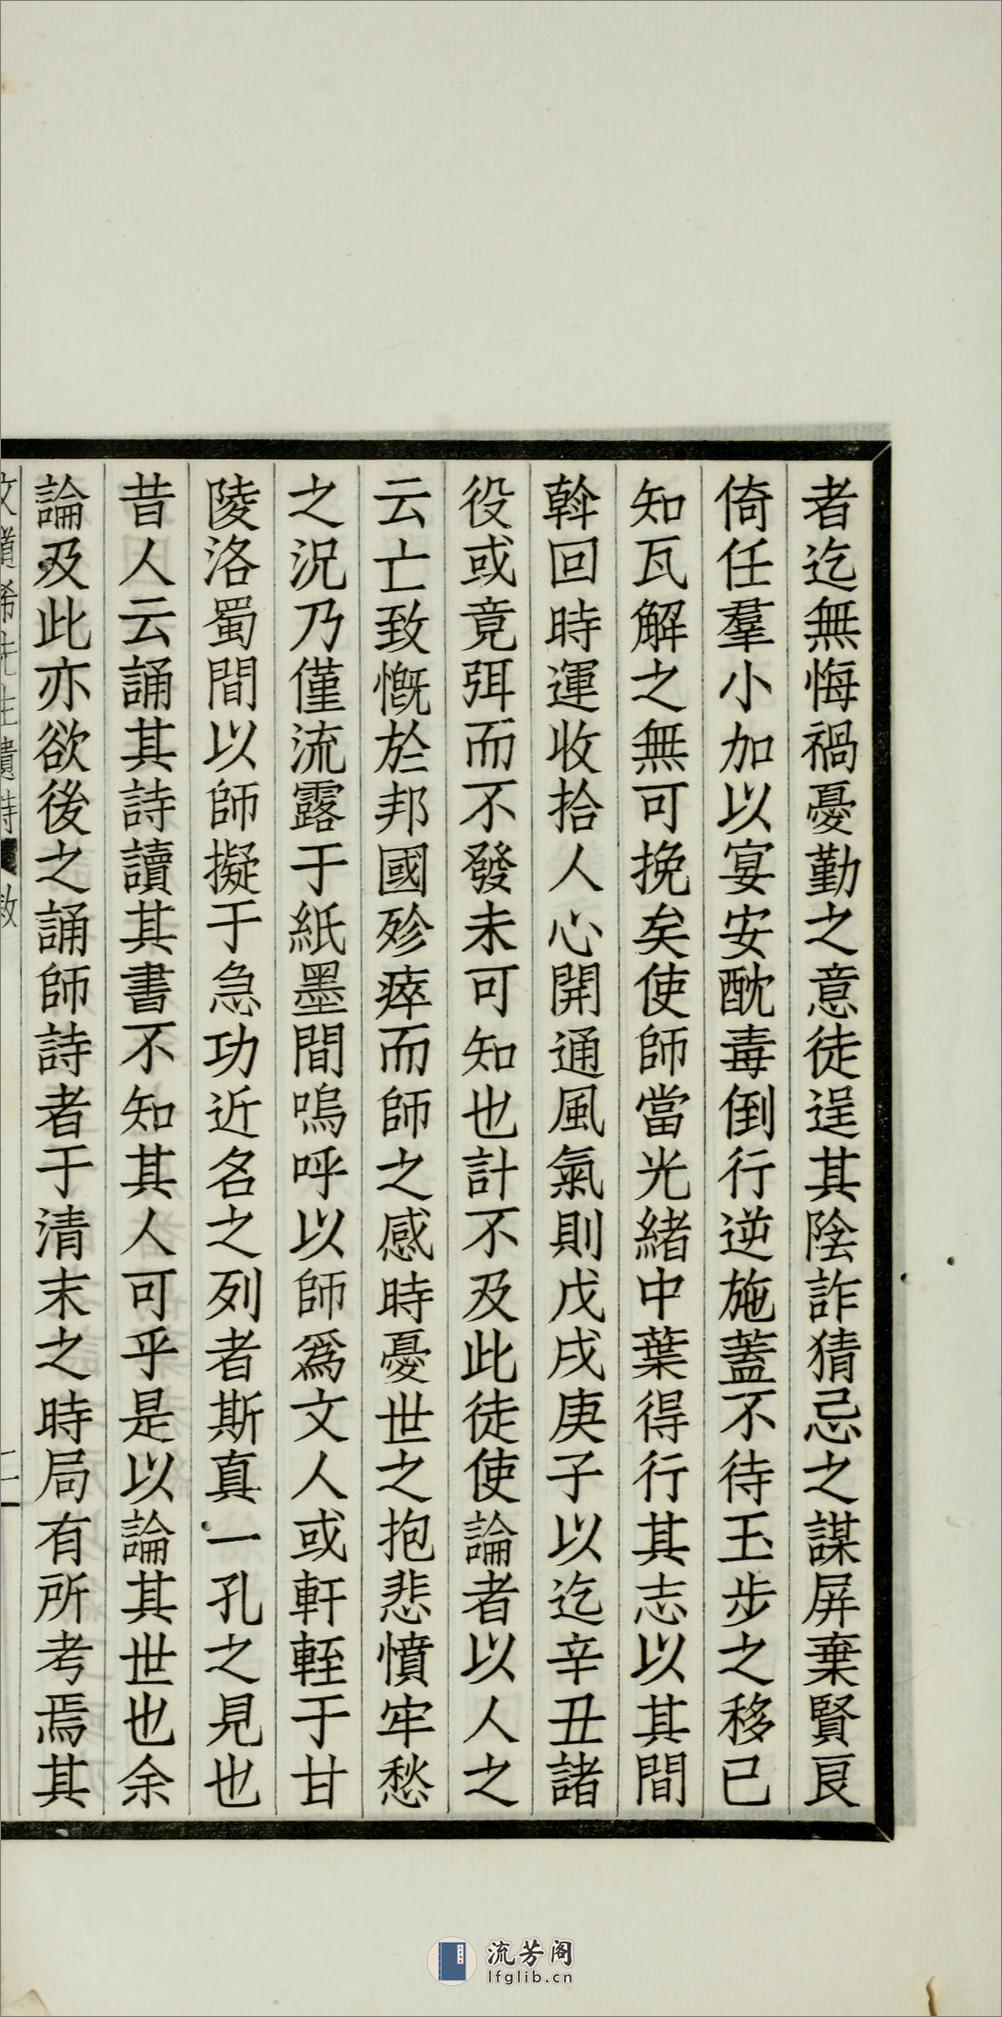 者迄無悔禍憂勤之意徒逞其陰詐猜忌之謀屏棄賢良
倚任羣小加以宴安酖毒倒行逆施蓋不待玉步之移已
知瓦解之無可挽矣使師當光緒中葉得行其志以其間
斡回時運收拾人心開通風氣則戊戌庚子以迄辛丑諸
役或竟弭而不發未可知也計不及此徒使論者以人之
云亡致慨於邦國殄瘁而師之感時憂世之抱悲憤牢愁
之況乃僅流露于紙墨間嗚呼以師爲文人或軒輊于甘
陵洛蜀間以師擬于急功近名之列者斯真一孔之見也
昔人云誦其詩讀其書不知其人可乎是以論其世也余
論及此亦欲後之誦師詩者于清末之時局有所考焉其
文道希先生遺詩 敘 二
流芳阁
lfglib.cn